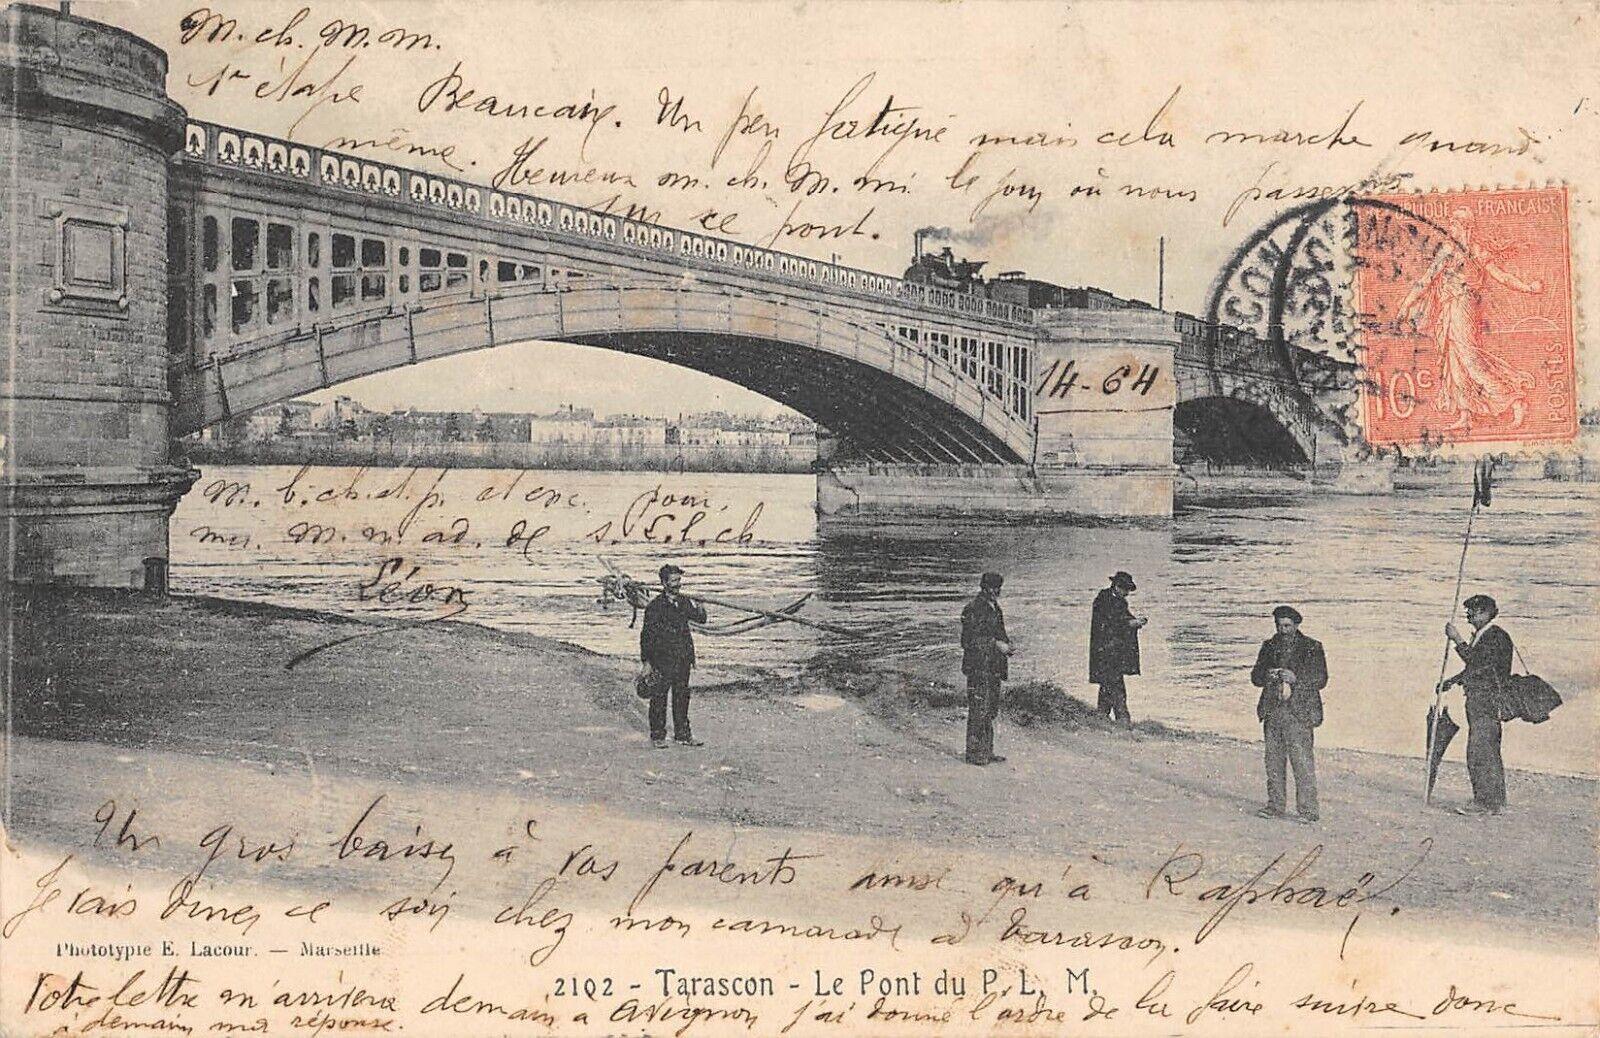 M. ch. M. m.
1re étape Beaucaire. Un peu fatigué mais cela marche quand
même. Heureux m. ch. M. mi. le jour où nous passerons
sur ce pont.
RÉPUBLIQUE FRANÇAISE
10c
POSTES
14-64
M. b. ch. et p. et enc. pour,
M. m. ad. de s. L. l. ch.
Léon
Un gros baiser à vos parents ainsi qu'à Raphaël.
Je vais diner ce soir chez mon camarade à Tarascon.
Phototypie E. Lacour. — Marseille
2102 - Tarascon - Le Pont du P. L. M.
Votre lettre m'arrivera demain à Avignon j'ai donné l'ordre de la faire suivre donc
à demain ma réponse.